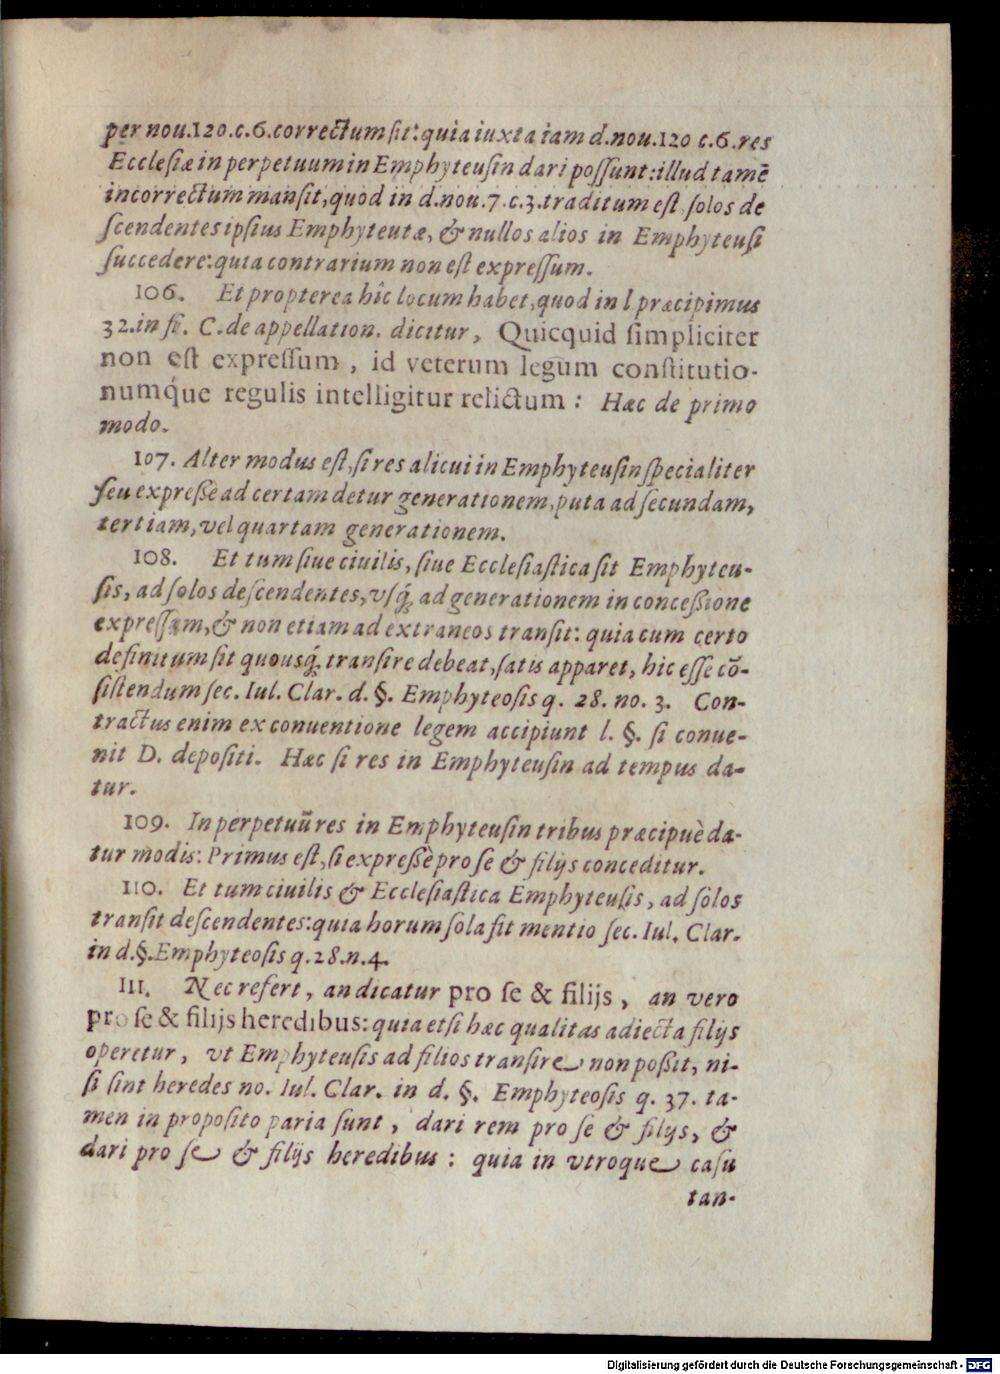 per nou.120.c.6.correctum ſit: quia iuxta iam d.nou.120 c.6.res
Eccleſiæ in perpetuum in Emphyteuſin dari poſſunt: illud tamẽ
incorrectum manſit, quod in d.nou.7.c.3.traditum eſt ſolos de
ſcendentes ipſius Emphyteutæ, & nullos alios in Emphyteuſi
ſuccedere: quia contrarium non eſt expreſſum.
106. Et propterea hîc locum habet, quod in l præcipimus
32.in fi. C. de appellation. dicitur, Quicquid ſimpliciter
non eſt expreſſum, id veterum legum conſtitutio-
numq́ue regulis intelligitur relictum: Hæc de primo
modo.
107. Alter modus eſt, ſi res alicui in Emphyteuſin ſpecialiter
ſeu expreßè ad certam detur generationem, puta ad ſecundam,
tertiam, vel quartam generationem.
108. Et tum ſiue ciuilis, ſiue Eccleſiaſtica ſit Emphyteu-
ſis, ad ſolos deſcendentes, vſq́ ad generationem in conceßione
expreſſam, & non etiam ad extraneos tranſit: quia cum certo
definitum ſit quouſq́ tranſire debeat, ſatis apparet, hic eſſe cõ-
ſiſtendum ſec. Iul. Clar. d. §. Emphyteoſis q. 28. no. 3. Con-
tractus enim ex conuentione legem accipiunt l. §. ſi conue-
nit D. depoſiti. Hæc ſi res in Emphyteuſin ad tempus da-
tur.
109. In perpetuũ res in Emphyteuſin tribus præcipuè da-
tur modis: Primus eſt, ſi expreßè pro ſe & filijs conceditur.
110. Et tum ciuilis & Eccleſiaſtica Emphyteuſis, ad ſolos
tranſit deſcendentes: quia horum ſola ſit mentio ſec. Iul. Clar.
in d.§. Emphyteoſis q.28.n.4.
111. Nec refert, an dicatur pro ſe & filijs, an vero
pro ſe & filijs heredibus: quia etſi hæc qualitas adiecta filijs
operetur, vt Emphyteuſis ad filios tranſire non poßit, ni-
ſi ſint heredes no. Iul. Clar. in d. §. Emphyteoſis q. 37. ta-
men in propoſito paria ſunt, dari rem pro ſe & filijs, &
dari pro ſe & filijs heredibus: quia in vtroque caſu
tan-
Digitalisierung gefördert durch die Deutsche Forschungsgemeinschaft - DFG